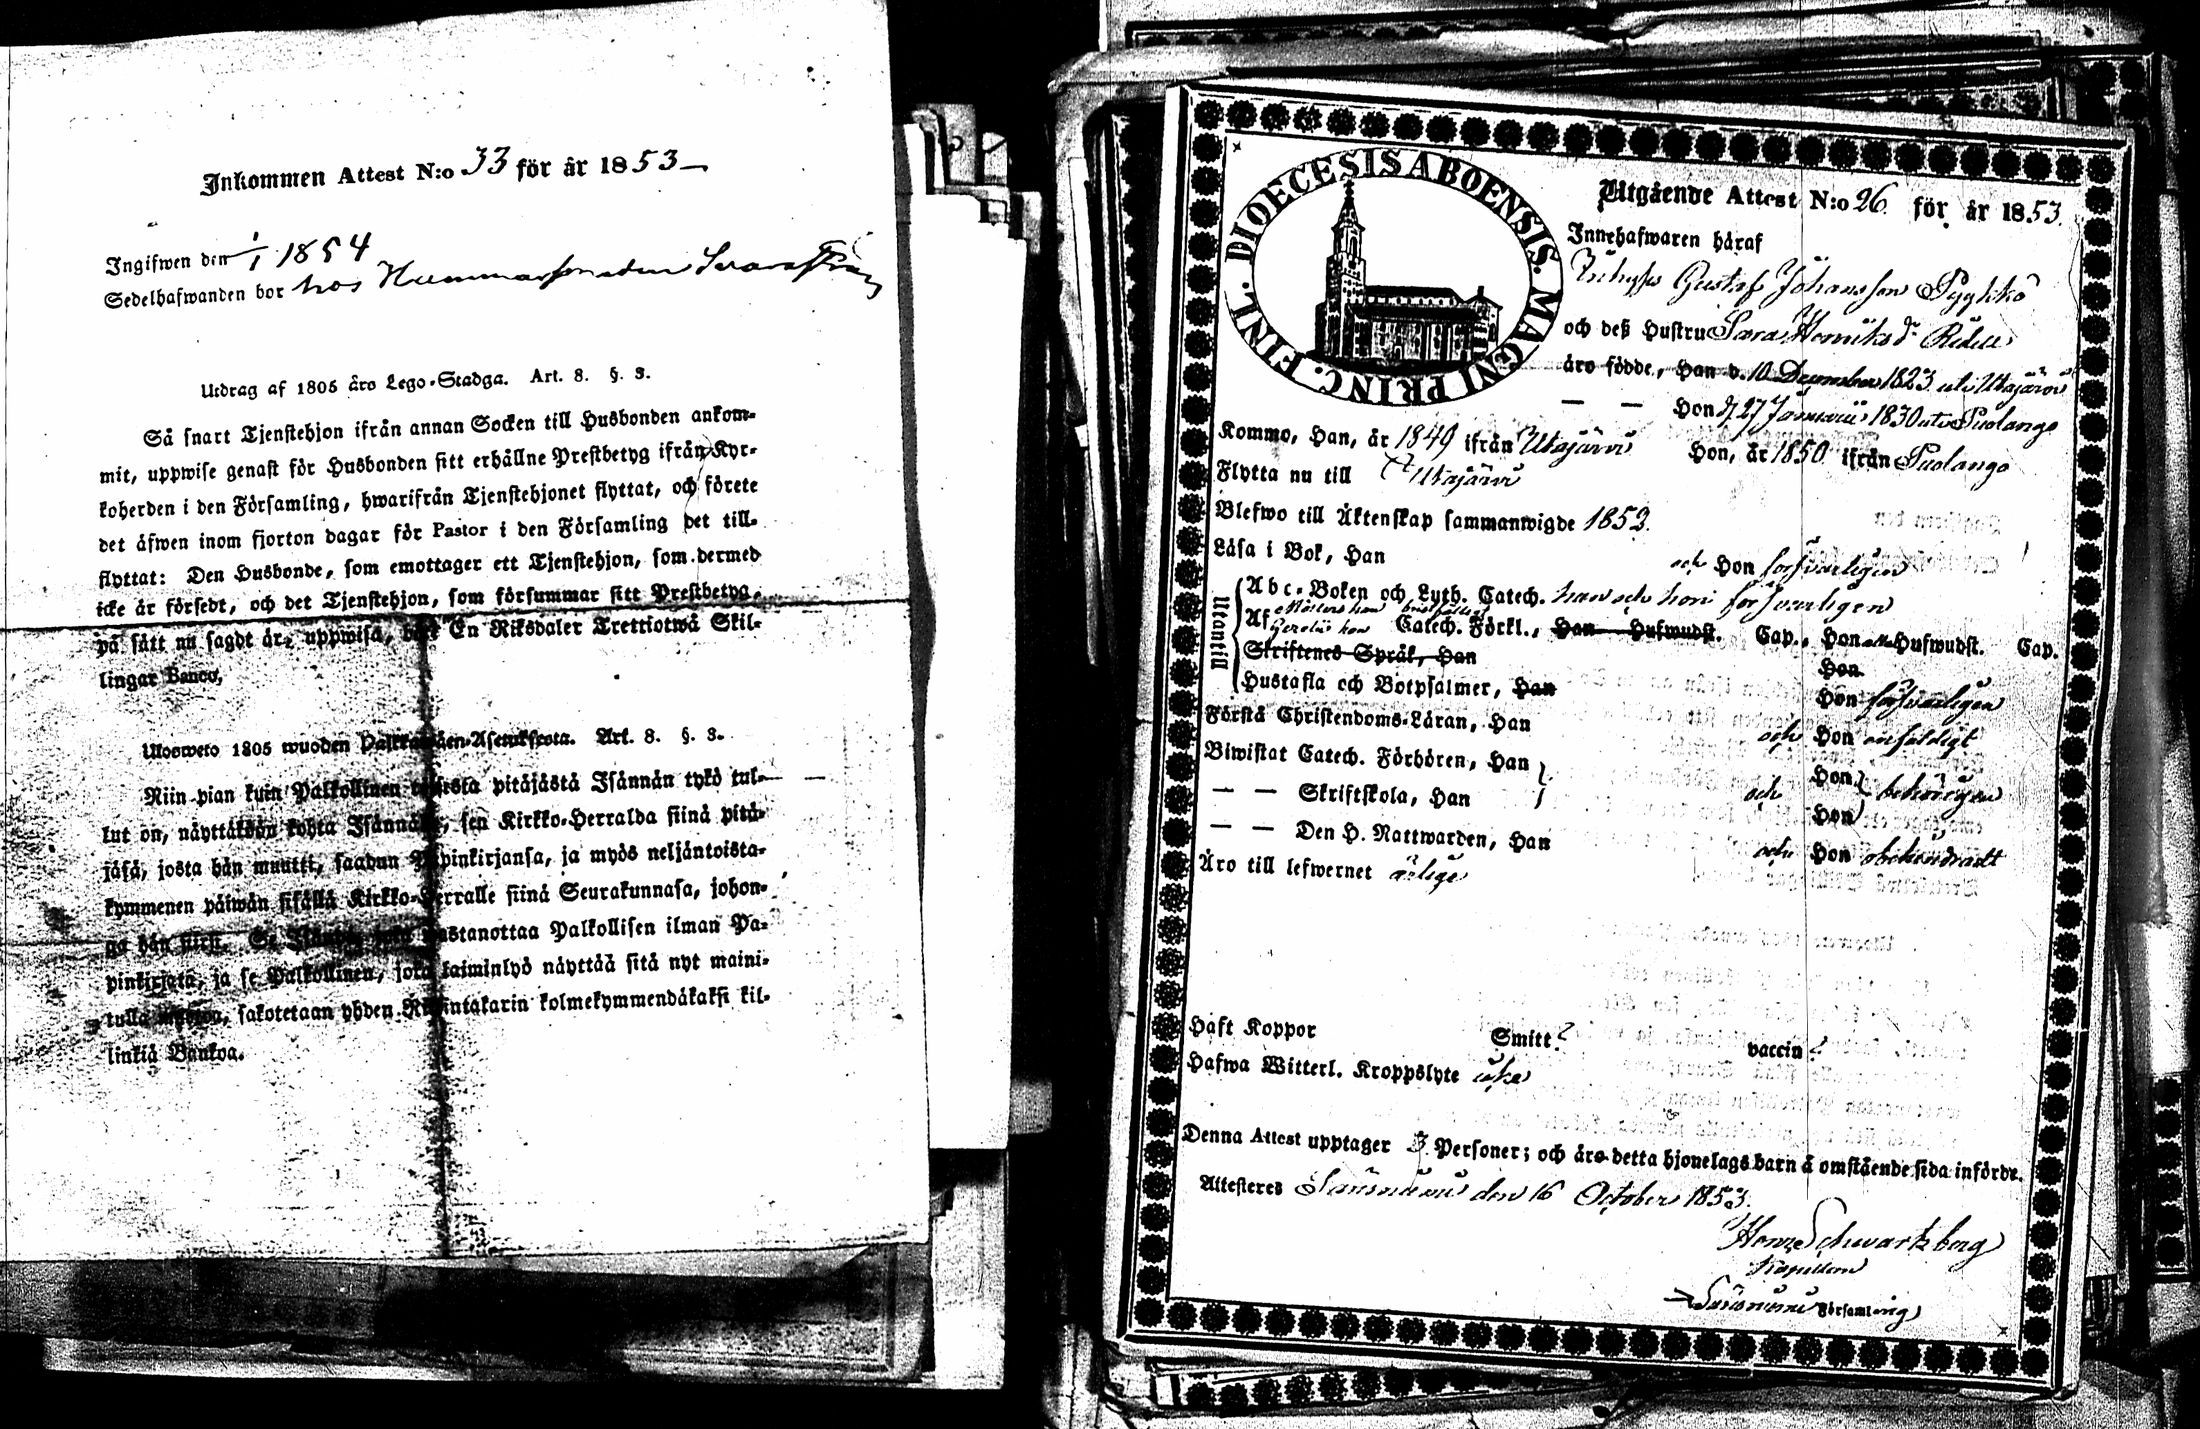 Inkommen Attest N:o 33 för år 1853
Ingifwen den 1/1 1854
Sedelhafwanden bor hos
Utdrag af 1805 års Lego-Stadga. Art. 8. §. 3.
Så snart Tjenstehjon ifrån annan Socken till Husbonden ankom-
mit, uppwise genast för Husbonden sitt erhållne Prestbetyg ifrån Kyr-
koherden i den Församling, hwarifrån Tjenstehjonet flyttat, och förete
det äfwen inom fjorton dagar för Pastor i den Församling det till-
flyttat: Den Husbonde, som emottager ett Tjenstehjon, som dermed
icke är försedt, och det Tjenstehjon, som försummar sitt Prestbetyg,
på sätt nu sagdt är, uppwisa, En Riksdaler Trettiotwå Skil-
lingar Banco.
Ulosweto 1805 wuoden Palkkawäen-Asetuksesta. Art. 8. §. 3.
Niin pian kuin Palkollinen toisesta pitäjästä Isännän tykö tul-
lut on, näyttäkään kohta Isännälle, sen Kirkko-Herralda siinä pitä-
jäsä, josta hän muutti, saadun Papinkirjansa, ja myös neljäntoista-
kymmenen päiwän sisällä Kirkko-Herralle siinä Seurakunnasa, johon-
ga hän siirsi. Se Isändä, joka wastanottaa Palkollisen ilman Pa-
pinkirjata, ja se Palkollinen, joka laiminlyö näyttää sitä nyt maini-
tulla sakotetaan yhden Riikintalarin kolmekymmendäkaksi kil-
linkiä Bankoa.
DIOECESIS ABOENSIS. MAGNI PRINC. FINL.
Utgående Attest N:o 26 för år 1853.
Innehafwaren häraf
Gustaf Johansson Pyykkö
och deß Hustru Sara Henriksdr
äro födde, Han d. 10 December 1823 uti Utajärvi
— — Hon d 27 Januarii 1830 uti Puolango
Kommo, Han, år 1849 ifrån Utajärvi Hon, år 1850 ifrån Puolango
Flytta nu till Utajärvi
Blefwo till Äktenskap sammanwigde 1853.
Läsa i Bok, Han och Hon försvarligen
Utantill
Abc-Boken och Luth. Catech. han och hon försvarligen
Af Catech. Förkl., Han Hufwudst. Cap., Hon Hufwudst. Cap.
Skriftenes Språk, Han Hon
Hustafla och Botpsalmer, Han Hon försvarligen
Förstå Christendoms-Läran, Han och Hon enfaldigt
Biwistat Catech. Förhören, Han Hon
— — Skriftskola, Han och Hon behörigen
— — Den H. Nattwarden, Han och Hon obehindradt
Äro till lefwernet ärlige
Haft Koppor Smitt? vaccin?
Hafwa Witterl. Kroppslyte icke
Denna Attest upptager 3 Personer; och äro detta hjonelags barn å omstående sida införde.
Attesteres Säräisniemi den 16 October 1853.
Henr. Schwartzberg
Kapellan
Säräisniemi Församling